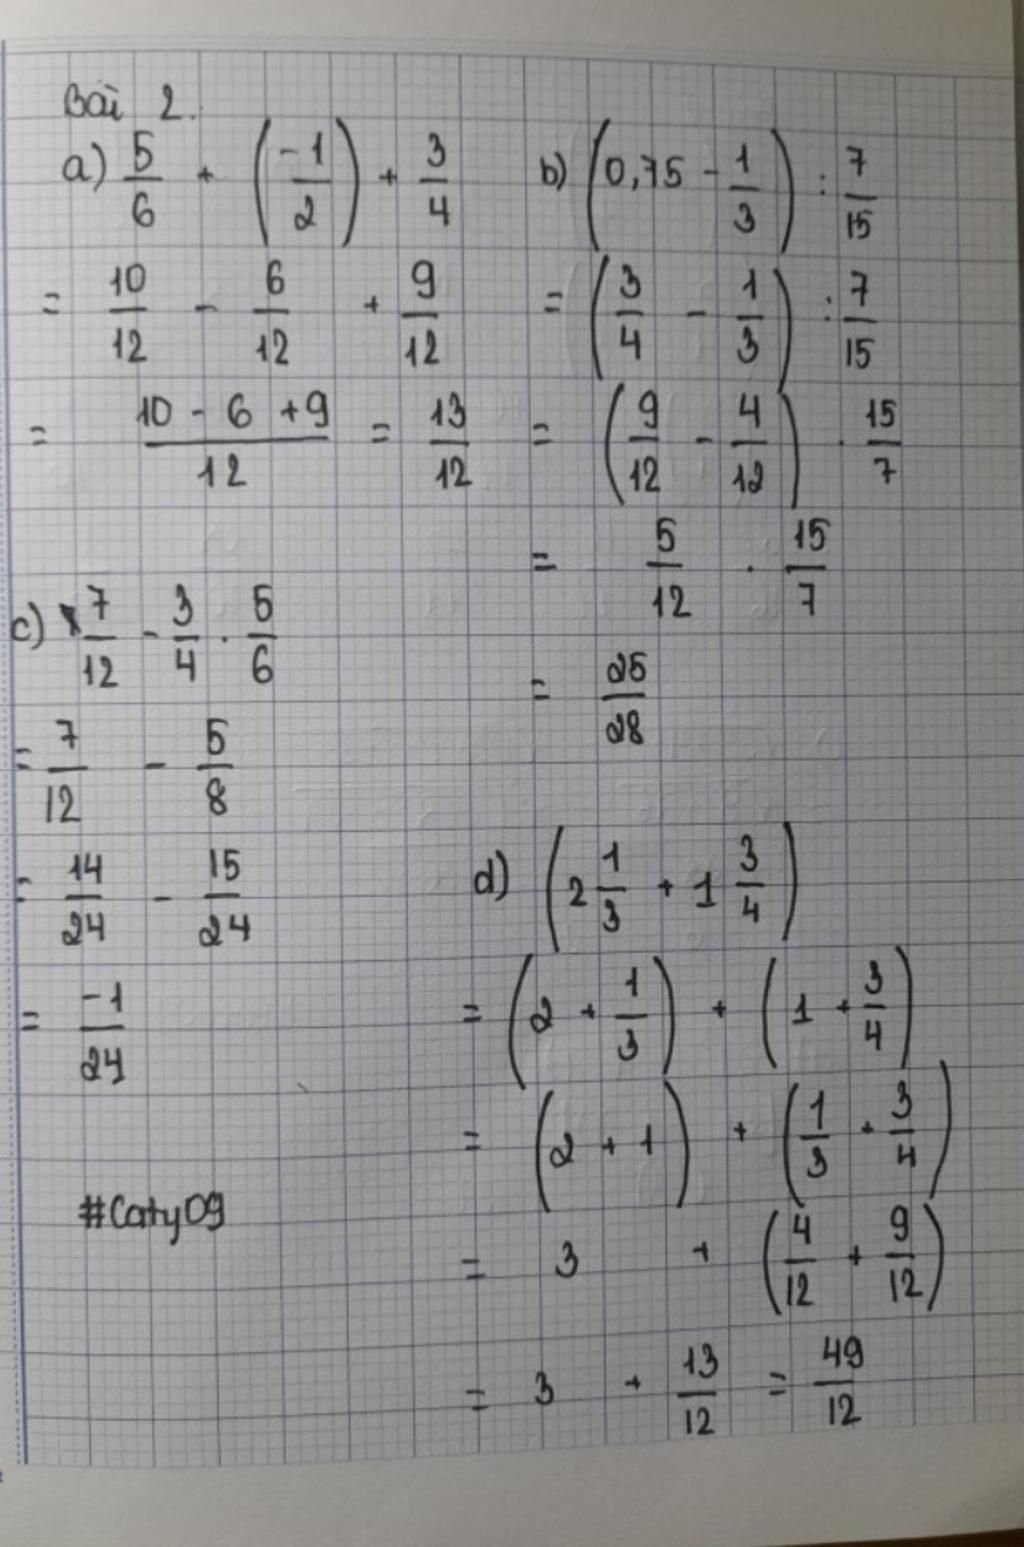 Bài 2.
a) 5/6 + (-1/2) + 3/4
= 10/12 - 6/12 + 9/12
= (10 - 6 + 9)/12 = 13/12
b) (0,75 - 1/3) : 7/15
= (3/4 - 1/3) : 7/15
= (9/12 - 4/12) . 15/7
= 5/12 . 15/7
= 25/28
c) 7/12 - 3/4 . 5/6
= 7/12 - 5/8
= 14/24 - 15/24
= -1/24
d) (2 1/3 + 1 3/4)
= (2 + 1/3) + (1 + 3/4)
= (2 + 1) + (1/3 + 3/4)
= 3 + (4/12 + 9/12)
= 3 + 13/12 = 49/12
#Caty09